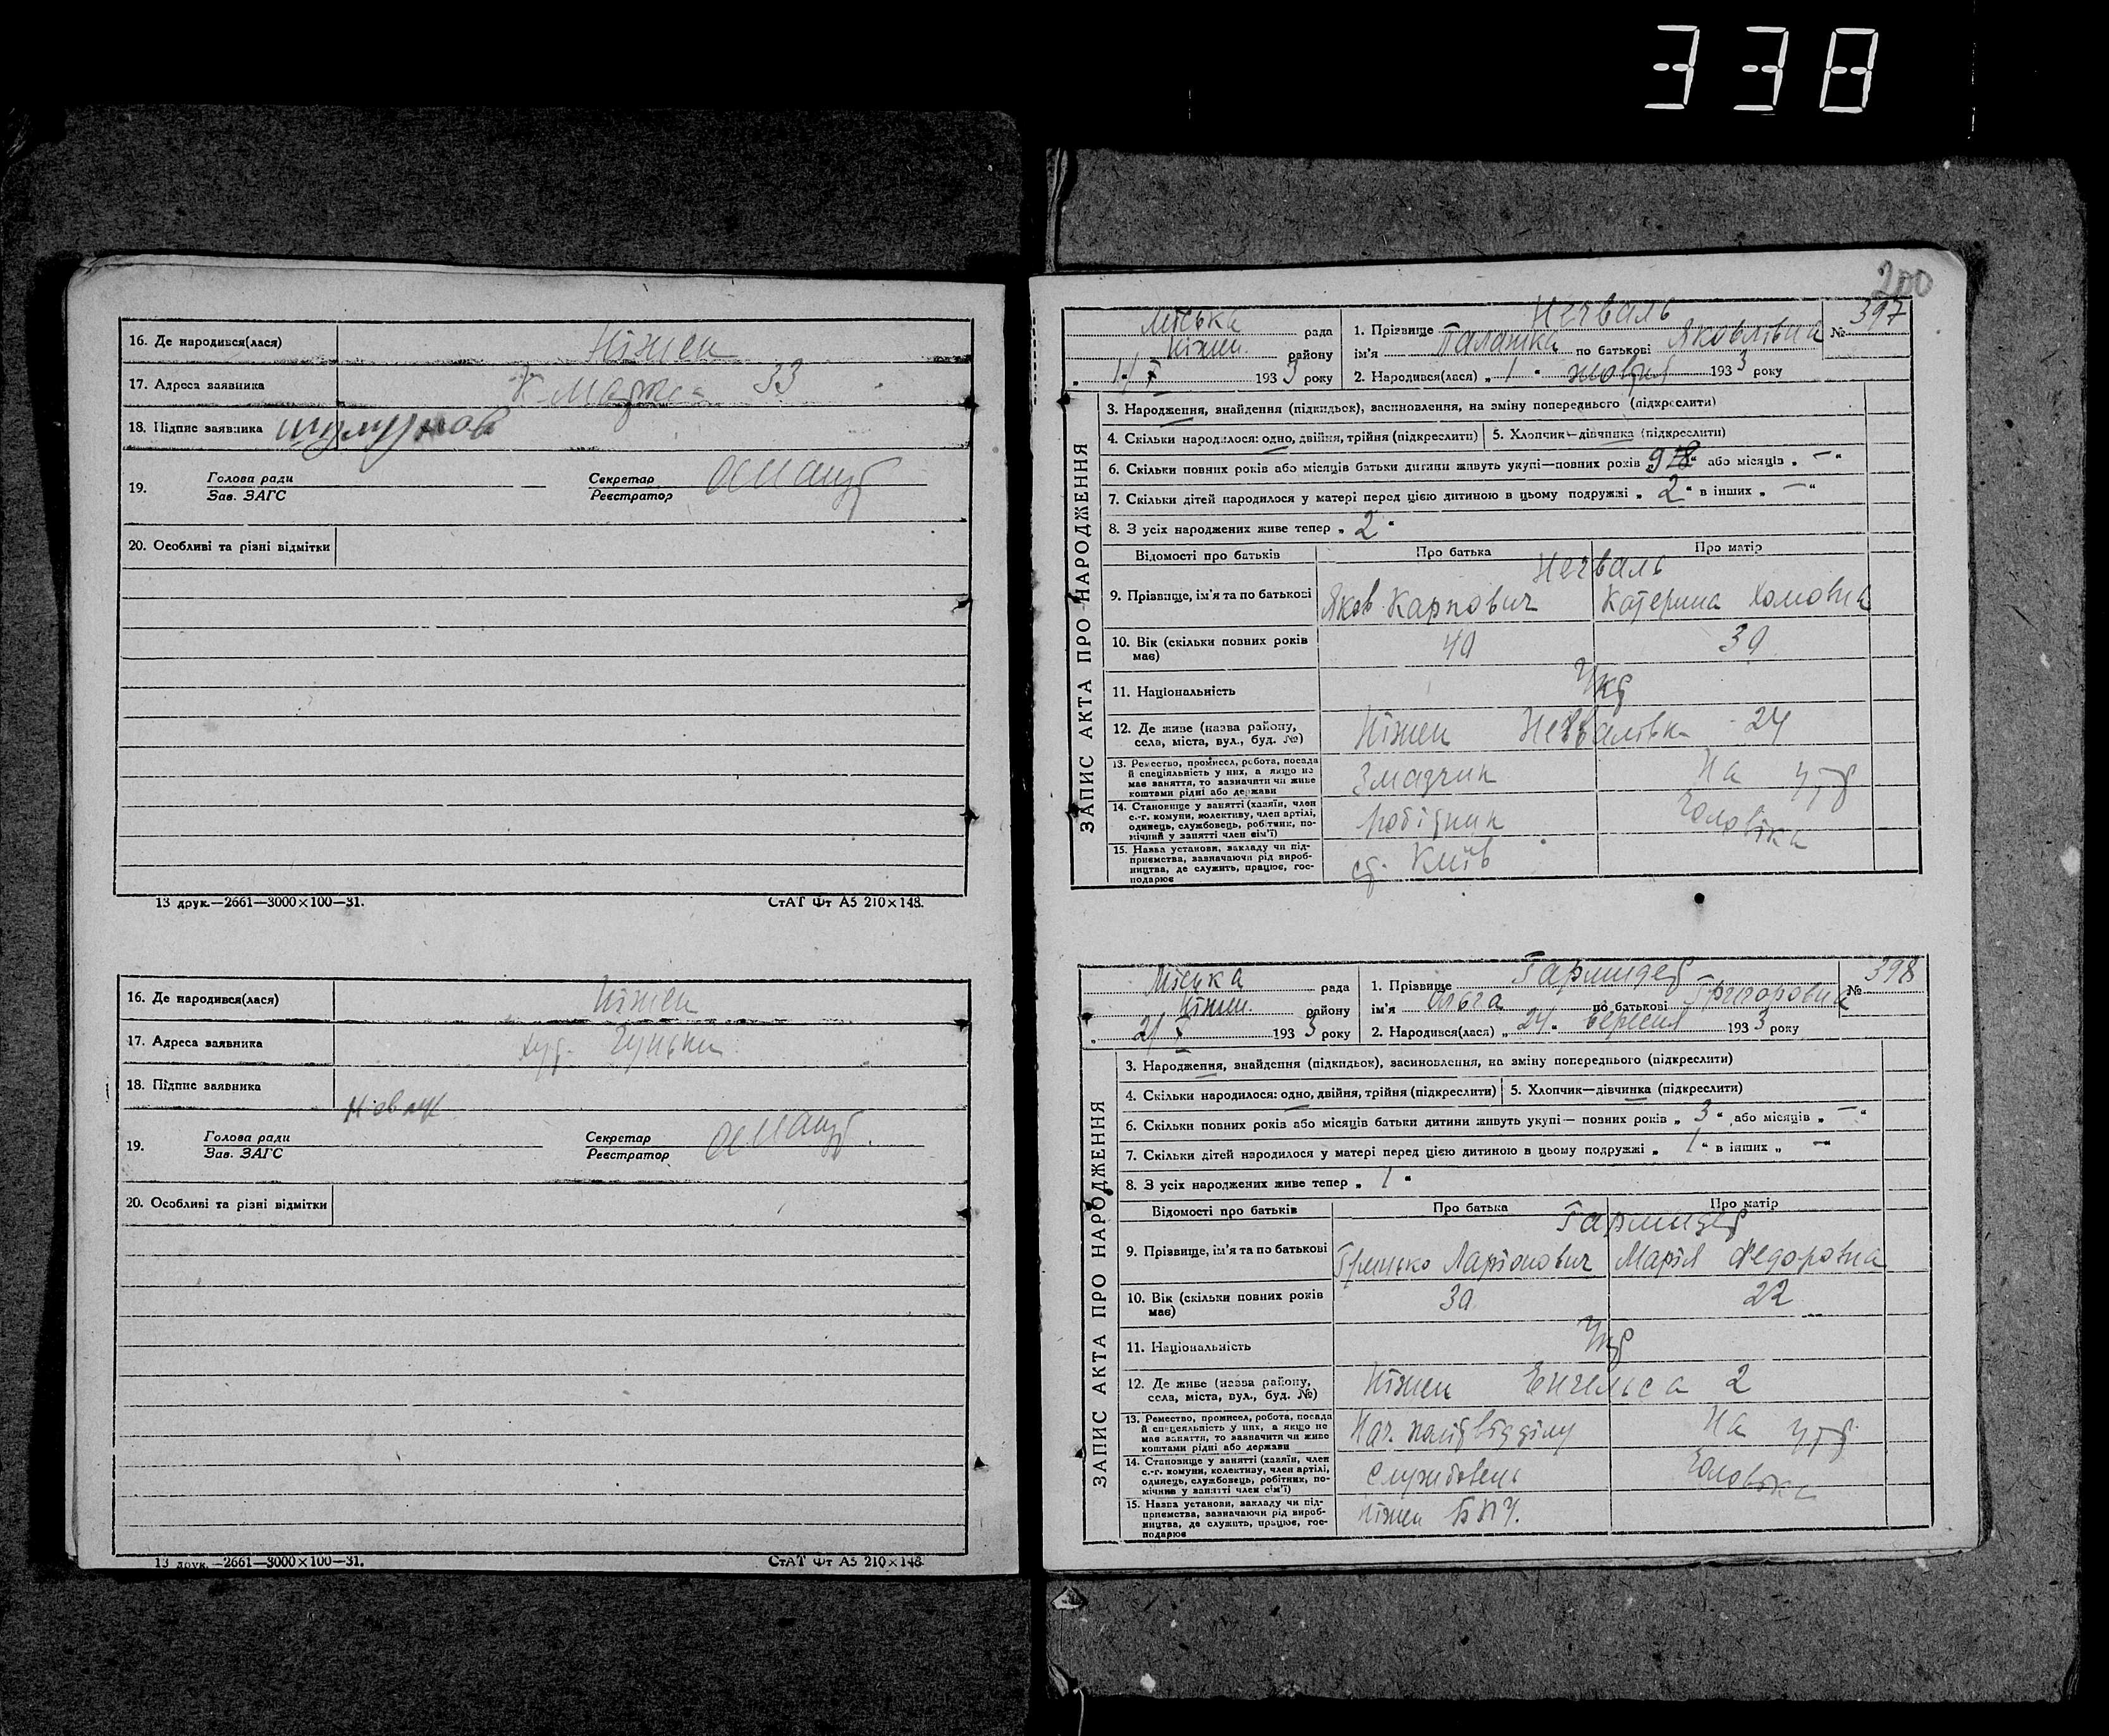 338
16. Де народився(лася) Ніжен
17. Адреса заявника К-Маркса 33
18. Підпис заявника
19. Голова ради Секретар
Зав. ЗАГС Реєстратор
20. Особливі та різні відмітки
13 друк.—2661—3000×100—31. СтАТ Фт А5 210×148.
16. Де народився(лася) Ніжен
17. Адреса заявника хут.
18. Підпис заявника
19. Голова ради Секретар
Зав. ЗАГС Реєстратор
20. Особливі та різні відмітки
13 друк.—2661—3000×100—31. СтАТ Фт А5 210×148.
200
ЗАПИС АКТА ПРО НАРОДЖЕННЯ
Міська рада 1. Прізвище Нечваль № 397
Ніжен. району ім'я Галашка по батькові Яковлівна
1/X 1933 року 2. Народився(лася) „ 1 “ жовтня 1933 року
3. Народження, знайдення (підкидьок), васиновлення, на зміну попереднього (підкреслити)
4. Скільки народилося: одно, двійня, трійня (підкреслити) 5. Хлопчик—дівчинка (підкреслити)
6. Скільки повних років або місяців батьки дитини живуть укупі—повних років „ “ або місяців „ — “
7. Скільки дітей народилося у матері перед цією дитиною в цьому подружжі „ 2 “ в інших „ — “
8. З усіх народжених живе тепер „ 2 “
Відомості про батьків Про батька Про матір
Нечваль
9. Прізвище, ім'я та по батькові Яков Карпович Катерина Хомовна
10. Вік (скільки повних років 40 30
має)
11. Національність Укр
12. Де живе (назва району, Ніжен 24
села, міста, вул., буд. №)
13. Ремество, промисел, робота, посада Змазчик На утр
й спеціяльність у них, а якщо не
має заняття, то зазначити чи живе
коштами рідні або держави
14. Становище у занятті (хазяїн, член робітник чоловіка
с.-г. комуни, колективу, член артілі,
одинець, службовець, робітник, по-
мічний у занятті член сім'ї)
15. Назва установи, закладу чи під- ст. Київ
приємства, зазначаючи рід вироб-
ництва, де служить, працює, гос-
подарює
ЗАПИС АКТА ПРО НАРОДЖЕННЯ
Міська рада 1. Прізвище Гармидер № 398
Ніжен. району ім'я Ольга по батькові Григоровна
2/X 1933 року 2. Народився(лася) „ 24 “ вересня 1933 року
3. Народження, знайдення (підкидьок), васиновлення, на зміну попереднього (підкреслити)
4. Скільки народилося: одно, двійня, трійня (підкреслити) 5. Хлопчик—дівчинка (підкреслити)
6. Скільки повних років або місяців батьки дитини живуть укупі— повних років „ 3 “ або місяців „ — “
7. Скільки дітей народилося у матері перед цією дитиною в цьому подружжі „ 1 “ в інших „ — “
8. З усіх народжених живе тепер „ 1 “
Відомості про батьків Про батька Про матір
Гармидер
9. Прізвище, ім'я та по батькові Гринько Ларіонович Марія Федоровна
10. Вік (скільки повних років 30 22
має)
11. Національність Укр
12. Де живе (назва району, Ніжен Енгельса 2
села, міста, вул., буд. №)
13. Ремество, промисел, робота, посада Нач. політвідділу На утр
й спеціяльність у них, а якщо не
має заняття, то зазначити чи живе
коштами рідні або держави
14. Становище у занятті (хазяїн, член Службовець чоловіка
с.-г. комуни, колективу, член артілі,
одинець, службовець, робітник, по-
мічний у занятті член сім'ї)
15. Назва установи, закладу чи під- Ніжен БПЧ.
приємства, зазначаючи рід вироб-
ництва, де служить, працює, гос-
подарює